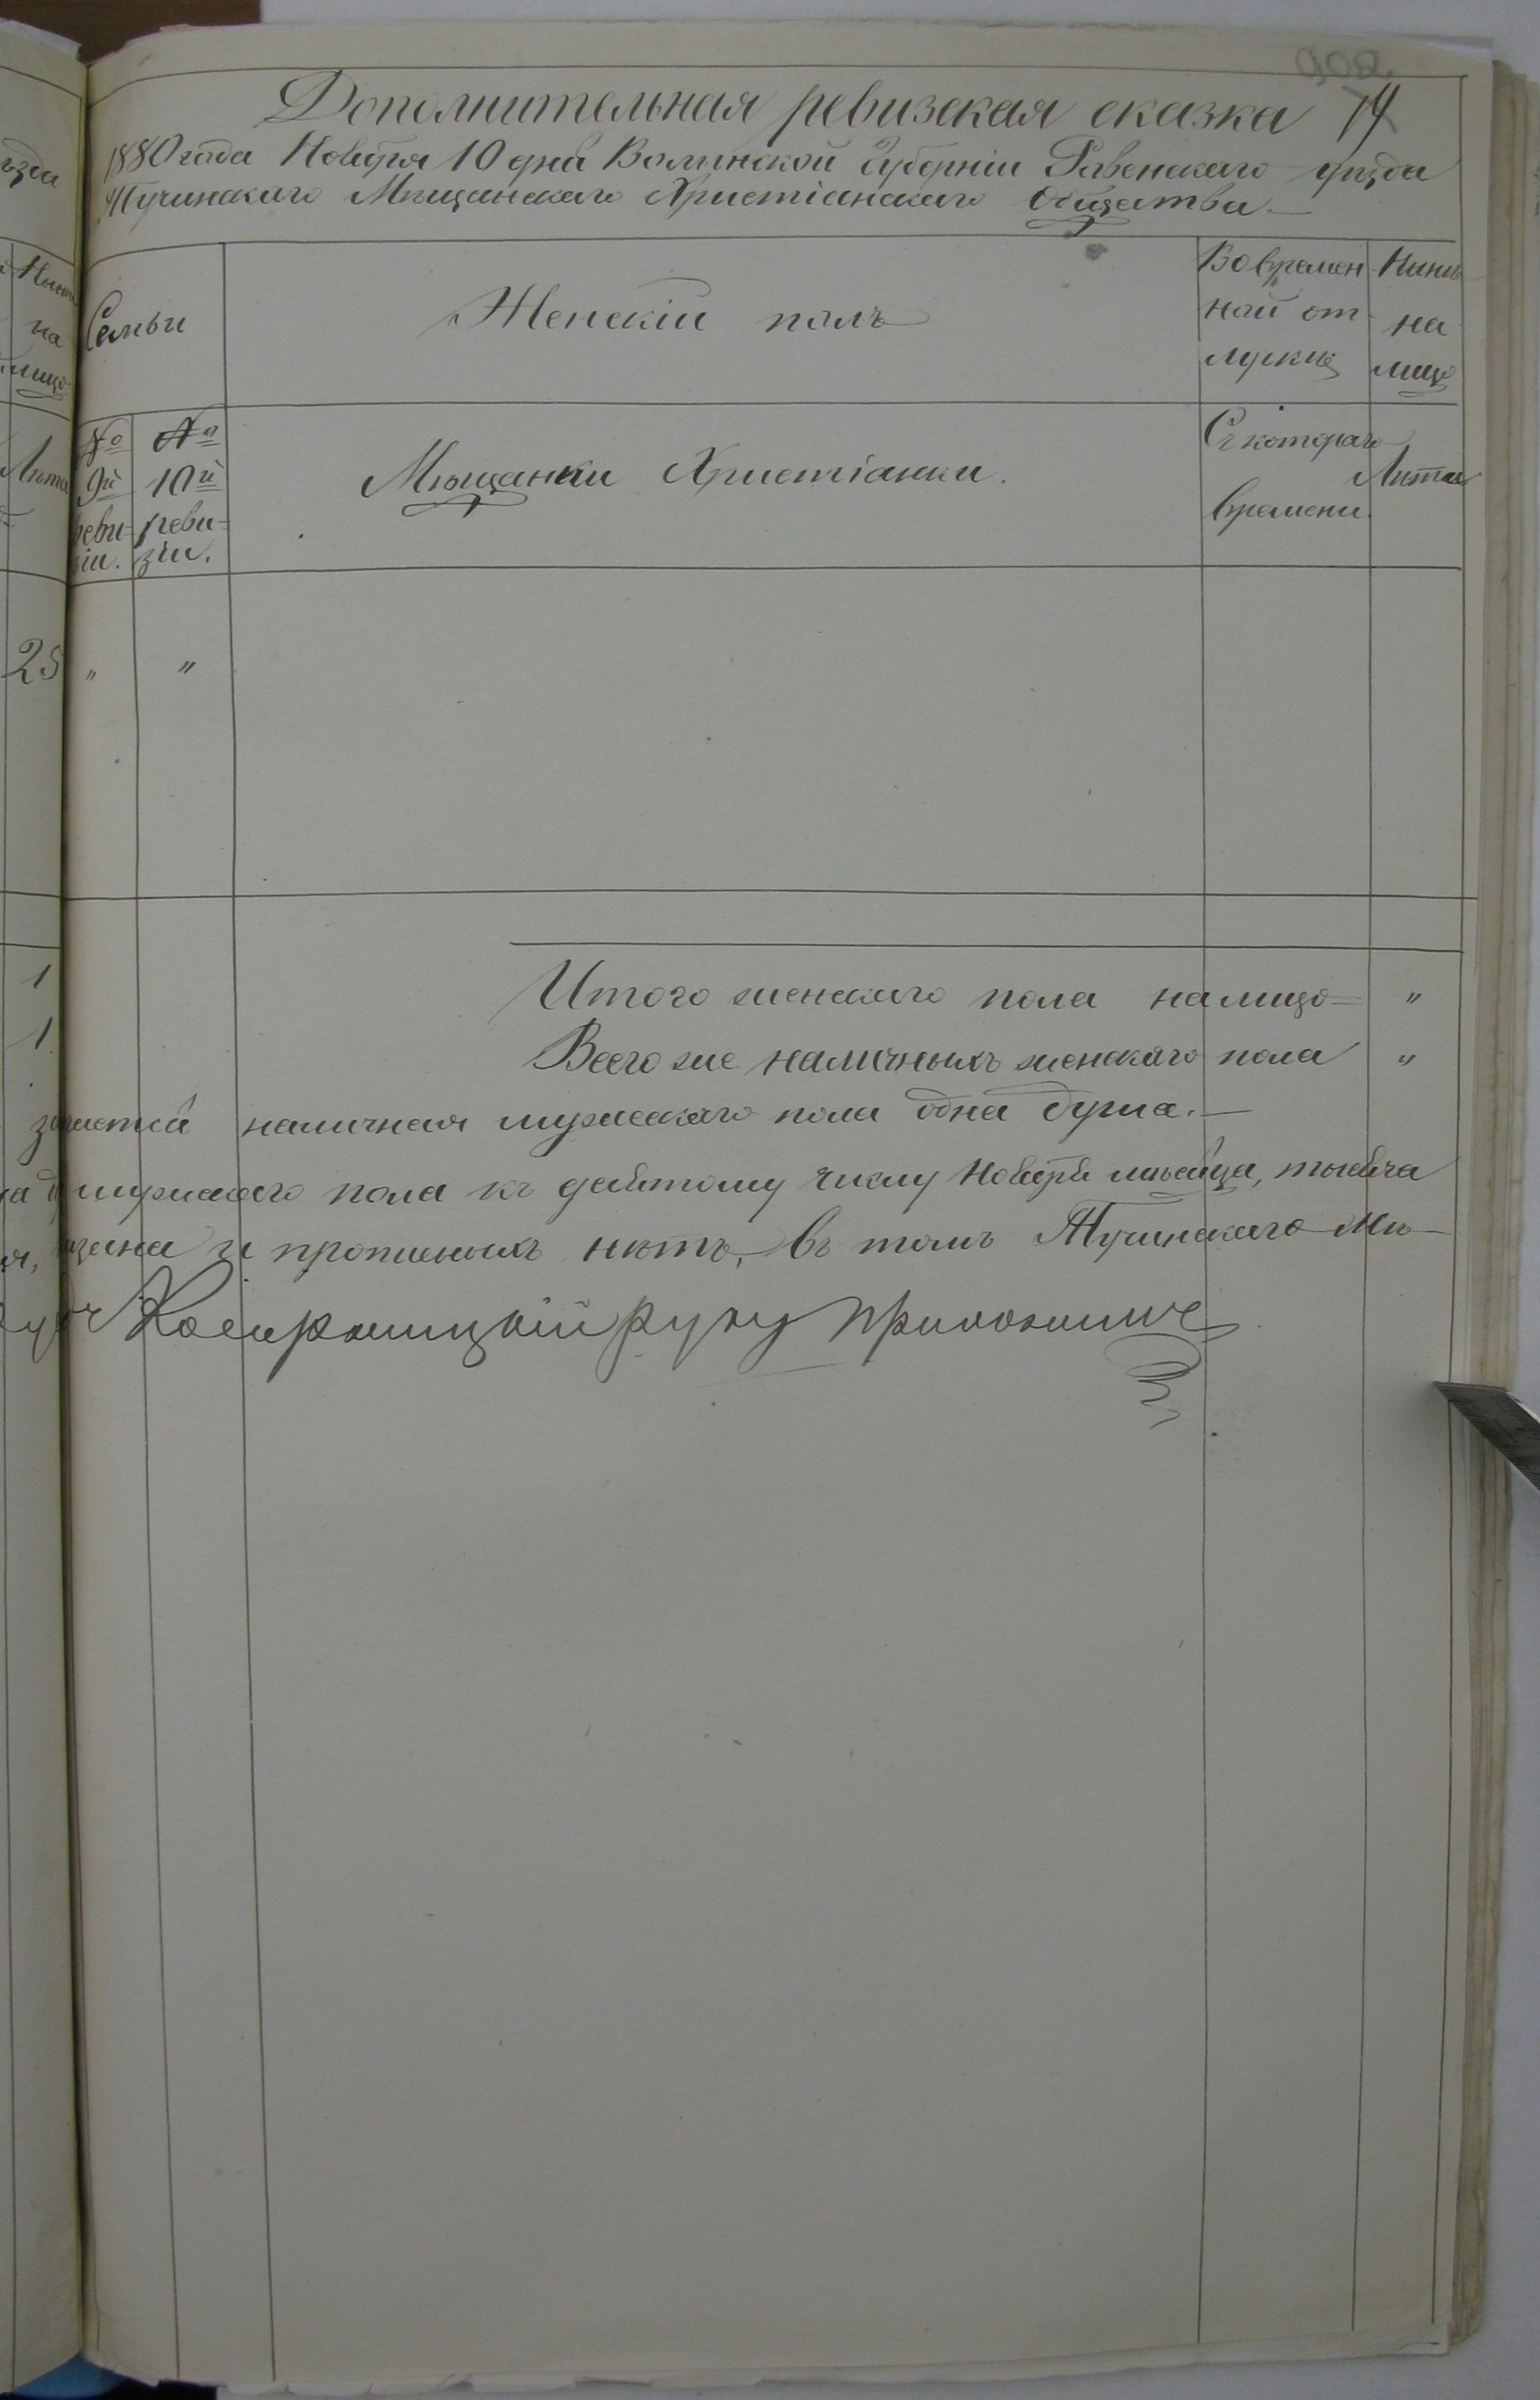 902
Дополнительная ревизская сказка 14
1880 года Ноября 10 дня Волынской Губерніи Ровенскаго уѣзда
Тучинскаго Мѣщанскаго Христіанскаго Общества
Семьи
Женскій полъ
Во времен
ной от
лучкѣ
Нынѣ
на
лицо
№ 9й реви-
зіи.
№ 10й реви-
зіи.
Мѣщанки Христіанки.
Съ котораго
времени.
Лѣта
25 " "
1 Итого женскаго пола налицо "
1 Всего же наличныхъ женскаго пола "
наличная мужескаго пола одна душа.
мужескаго пола къ десятому числу Ноября мѣсяца, тысяча
и прописныхъ нѣтъ, въ томъ Тучинскаго Мѣ-
руку приложилъ